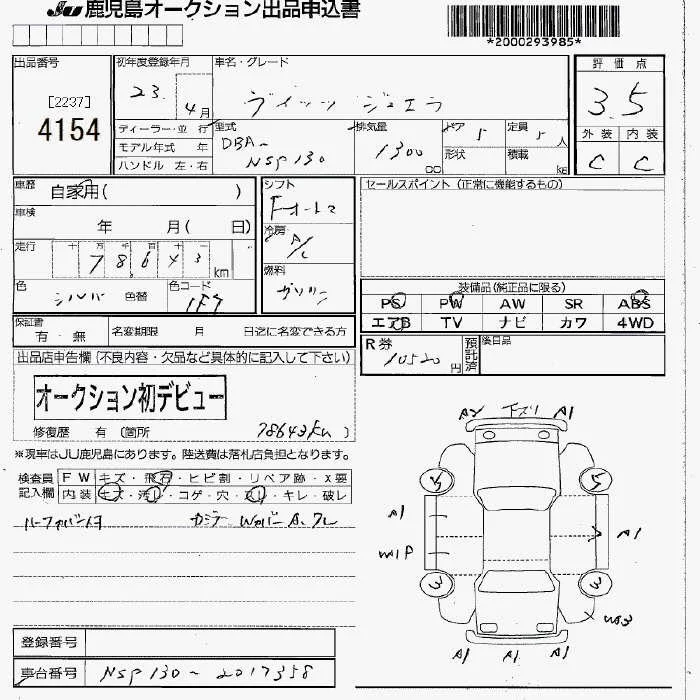 JU 鹿児島オークション出品申込書
*2000293985*
出品番号
[2237]
4154
初年度登録年月
23. 4月
車名・グレード
ヴィッツ ジュエラ
評価点
3.5
外装 内装
C C
ディーラー・並行
モデル年式 年
ハンドル 左・右
型式
DBA-
NSP130
排気量
1300 CC
ドア 5
形状
定員 5人
積載 kg
車歴 自家用( )
車検 年 月( 日)
走行 十 万 千 百 十
78,643 km
色 シルバ 色替
色コード 1F7
シフト
Fオート
冷房
A/C
燃料
ガソリン
セールスポイント (正常に機能するもの)
装備品(純正品に限る)
PS PW AW SR ABS
エアB TV ナビ カワ 4WD
保証書
有・無
名変期限 月 日迄に名変できる方
R券 10520円
預託済
後日品
出品店申告欄(不良内容・欠品など具体的に記入して下さい)
オークション初デビュー
修復歴 有 〔箇所 78643km 〕
※現車はJU鹿児島にあります。陸送費は落札店負担となります。
検査員記入欄
FW キズ・飛石・ヒビ割・リペア跡・X要
内装 キズ・汚れ・コゲ・穴・・キレ・破レ
A2 下ズリ A1
5 5
A1 A1
W1P
3 3
A1 A1
登録番号
車台番号 NSP130-2017358